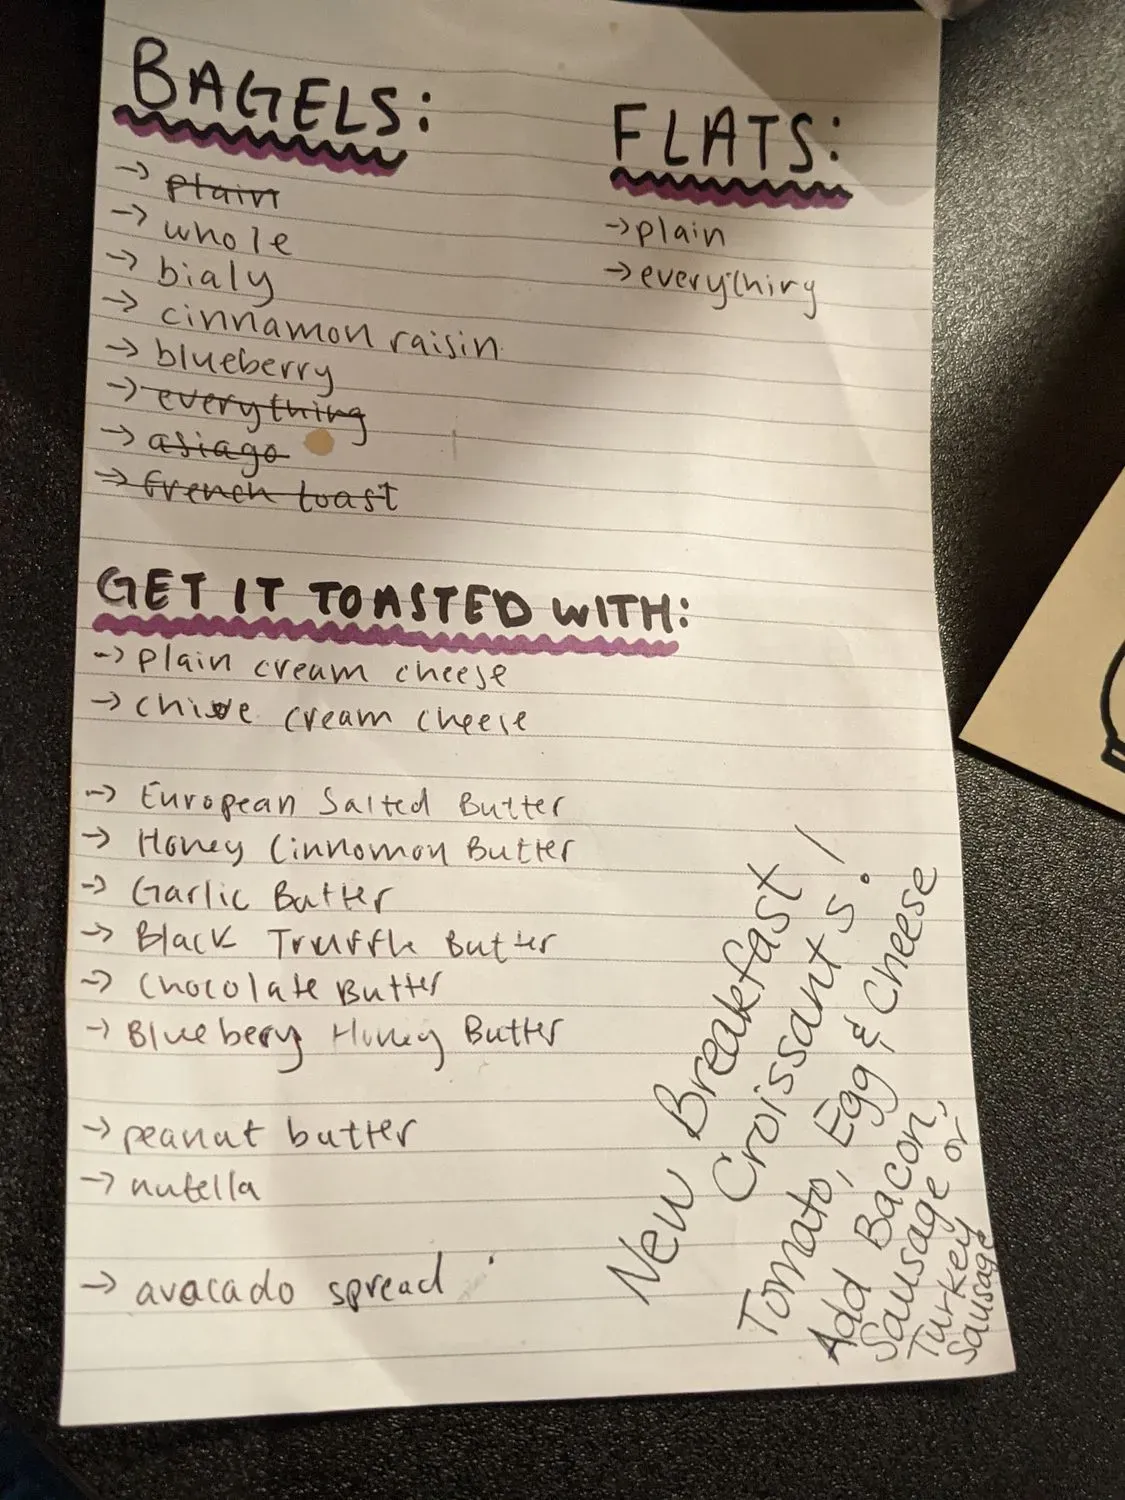 BAGELS:
→ plain
→ whole
→ bialy
→ cinnamon raisin
→ blueberry
→ everything
→ asiago
→ french toast
FLATS:
→ plain
→ everything
GET IT TOASTED WITH:
→ plain cream cheese
→ chive cream cheese
→ European Salted Butter
→ Honey Cinnomon Butter
→ Garlic Butter
→ Black Truffle Butter
→ Chocolate Butter
→ Bluebery Honey Butter
→ peanut butter
→ nutella
→ avacado spread
New Breakfast
Croissants!
Tomato, Egg & Cheese
Add Bacon,
Sausage or
Turkey
Sausage